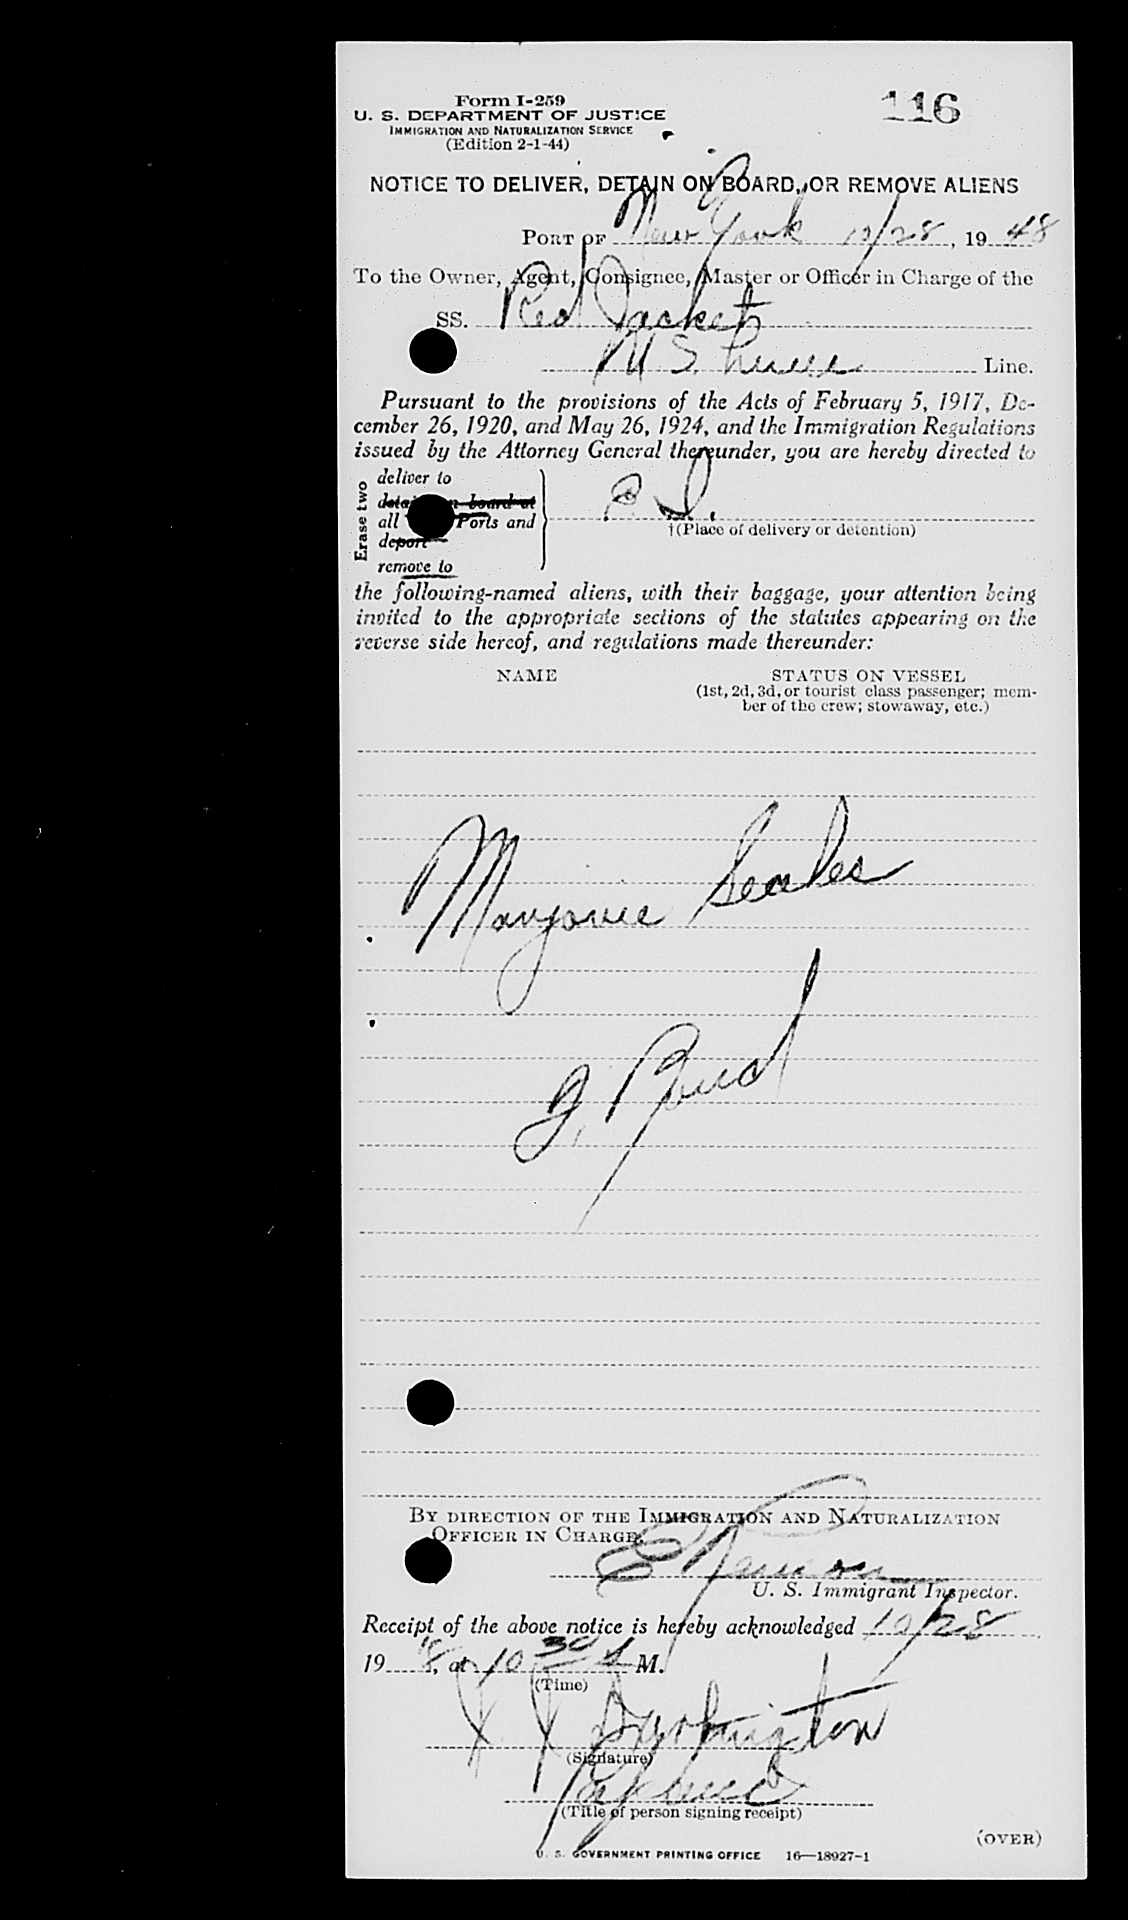 Form I-259
116
U. S. DEPARTMENT OF JUSTICE
IMMIGRATION AND NATURALIZATION SERVICE
(Edition 2-1-44)
NOTICE TO DELIVER, DETAIN ON BOARD, OR REMOVE ALIENS
PORT OF New York 10/28, 19 48
To the Owner, Agent, Consignee, Master or Officer in Charge of the
SS. Red Jacket
U S Line.
Pursuant to the provisions of the Acts of February 5, 1917, De-
cember 26, 1920, and May 26, 1924, and the Immigration Regulations
issued by the Attorney General thereunder, you are hereby directed to
Erase two
deliver to
board at
all Ports and
deport
remove to
†(Place of delivery or detention)
the following-named aliens, with their baggage, your attention being
invited to the appropriate sections of the statutes appearing on the
reverse side hereof, and regulations made thereunder:
NAME STATUS ON VESSEL
(1st, 2d, 3d, or tourist class passenger; mem-
ber of the crew; stowaway, etc.)
Marjorie Scales
BY DIRECTION OF THE IMMIGRATION AND NATURALIZATION
OFFICER IN CHARGE.
U. S. Immigrant Inspector.
Receipt of the above notice is hereby acknowledged 10/28
19 8, at 10 30 A M.
(Time)
(Signature)
(Title of person signing receipt)
(OVER)
U. S. GOVERNMENT PRINTING OFFICE 16—18927-1